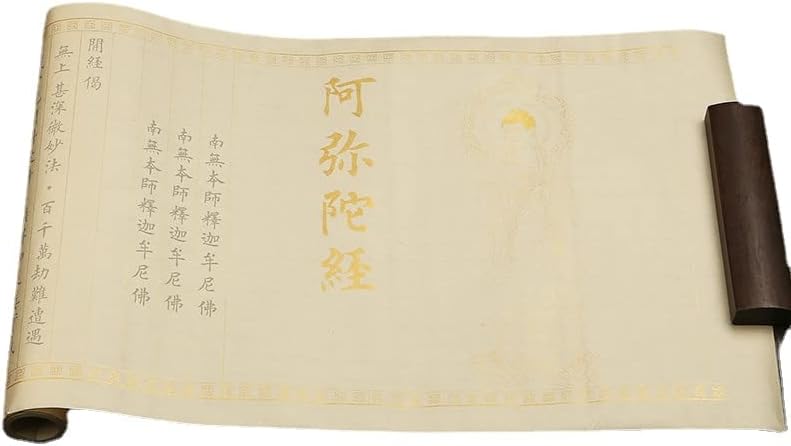 阿弥陀経
南無本師釋迦牟尼佛
南無本師釋迦牟尼佛
南無本師釋迦牟尼佛
開經偈
無上甚深微妙法。百千萬劫難遭遇